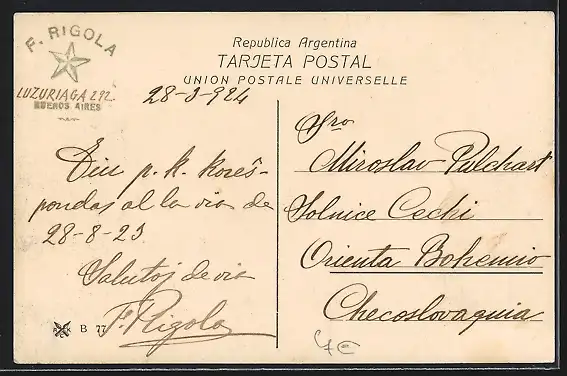 F. RIGOLA
LUZURIAGA 292
BUENOS AIRES
Republica Argentina
TARJETA POSTAL
UNION POSTALE UNIVERSELLE
28-3-924
Ĉiu p. k. kores-
pondas al la via de
28-8-23.
Salutas de via
F. Rigola
B 77
Sro
Miroslav Pulchart
Solnice Cechi
Orienta Bohemio
Checoslovaquia
4€